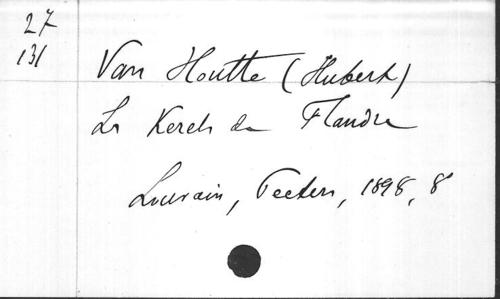 27
131
Van Houtte (Hubert)
Les Kerels de Flandre
Louvain, Peeters, 1898, 8°